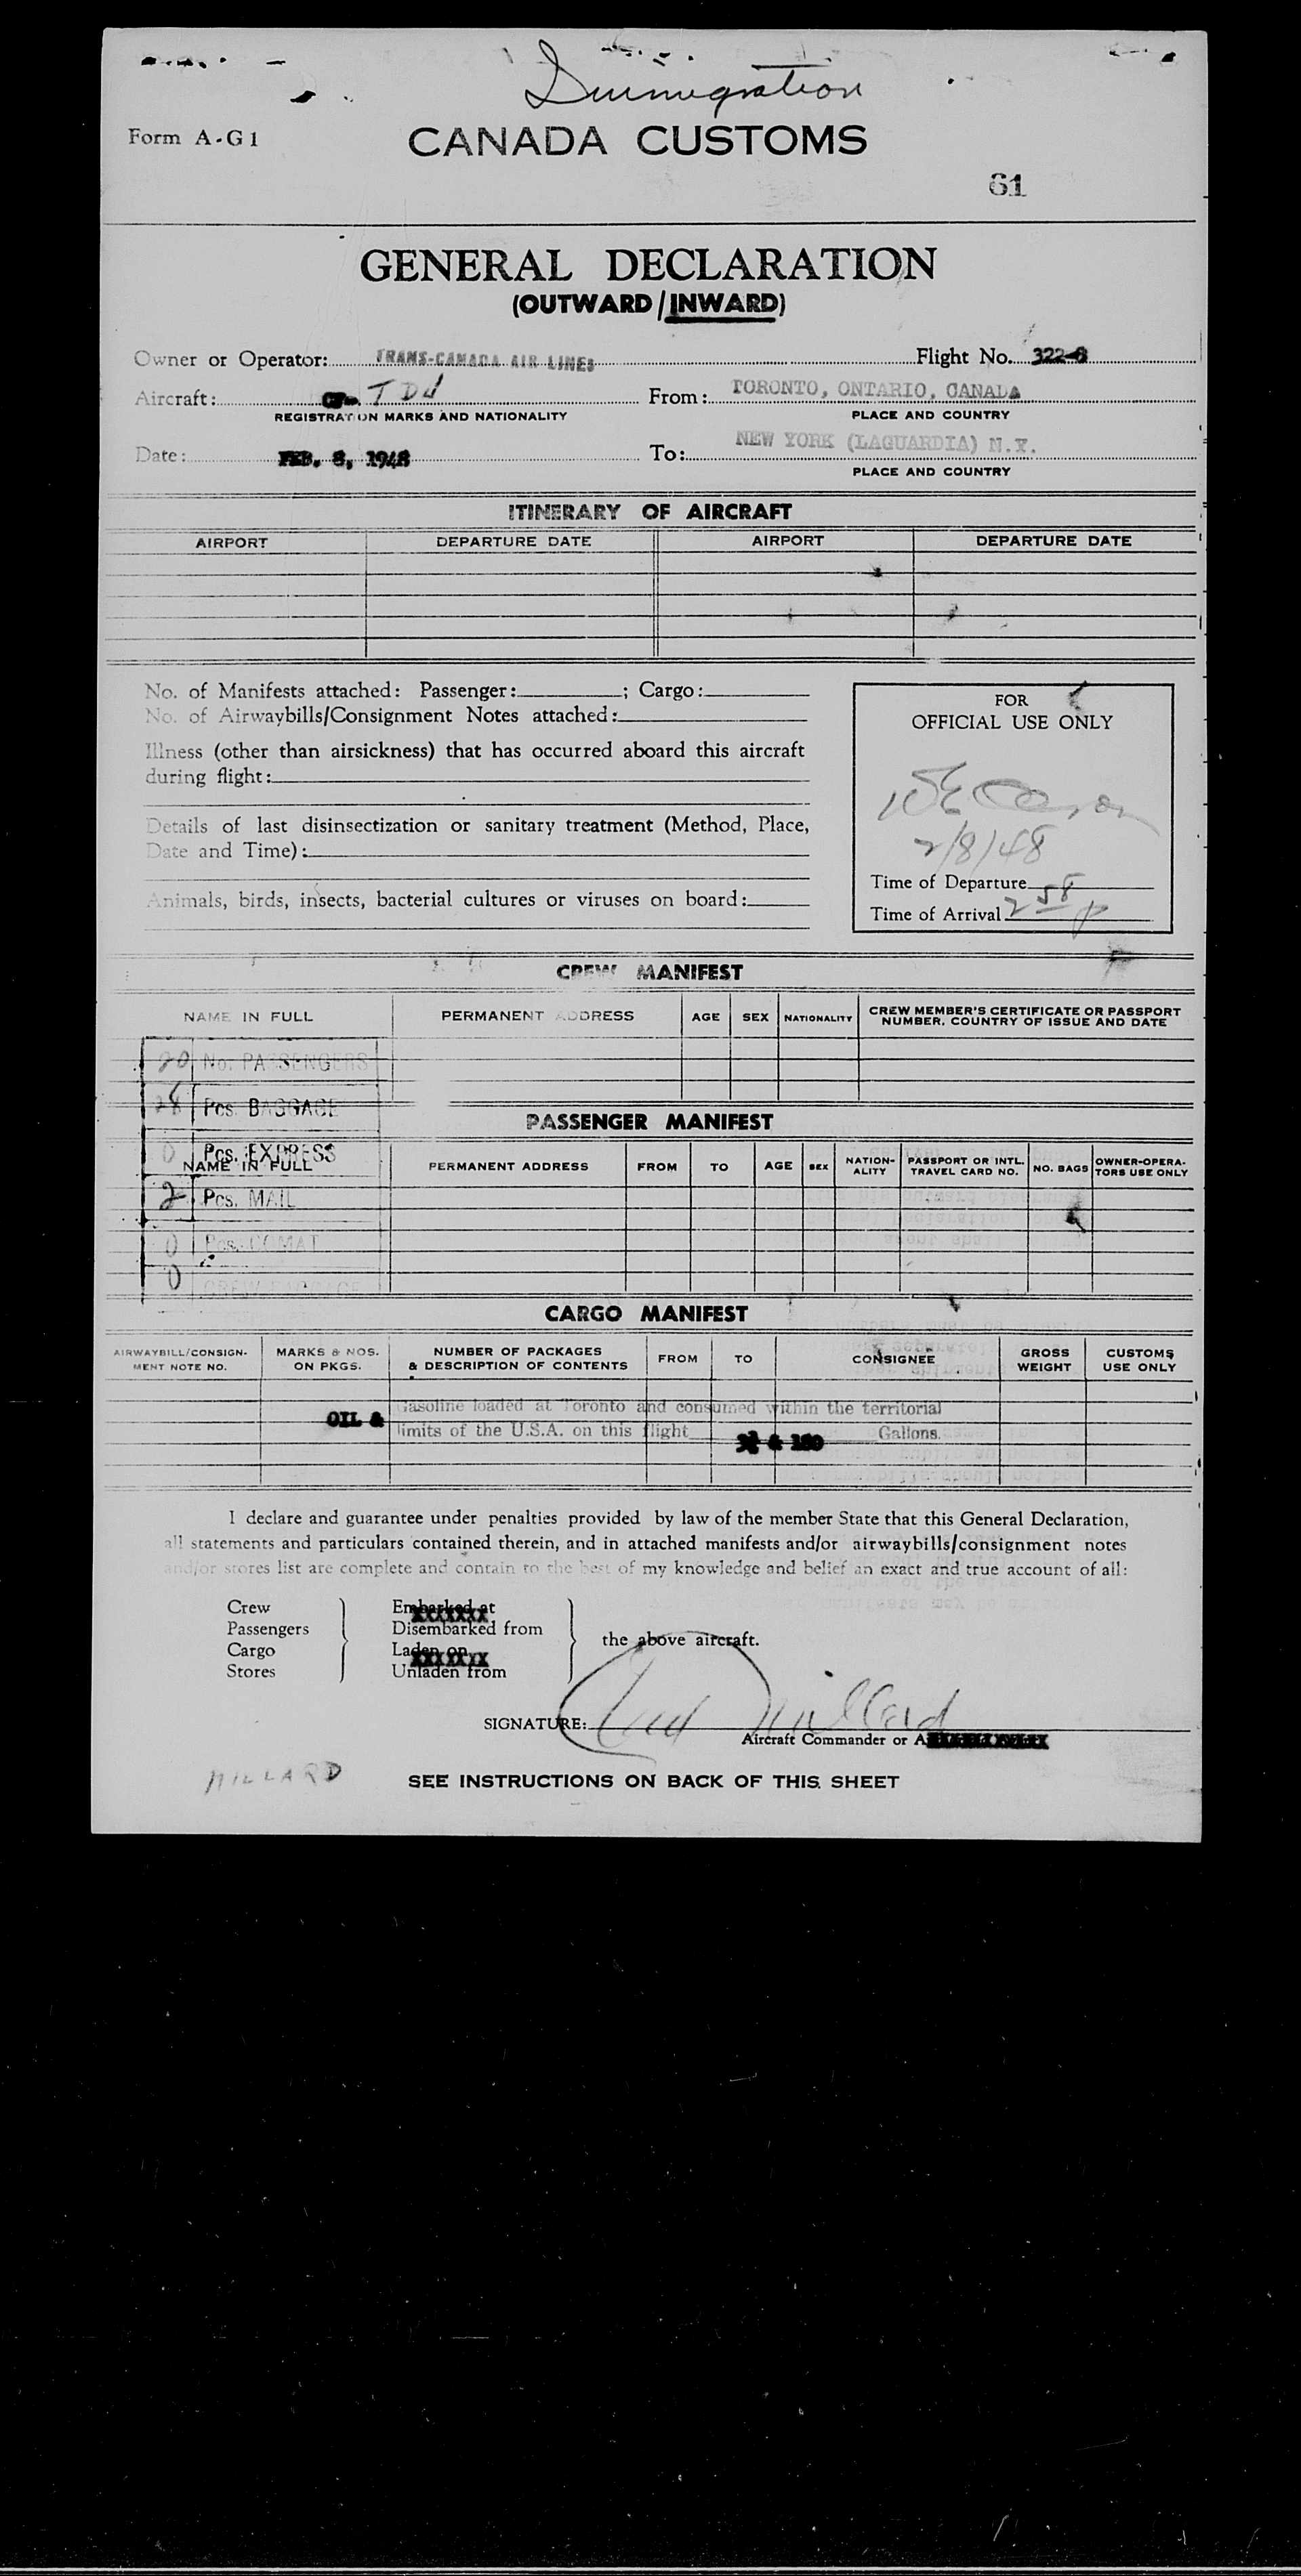 Immigration
Form A-G1
CANADA CUSTOMS
61
GENERAL DECLARATION
(OUTWARD/INWARD)
Owner or Operator: TRANS-CANADA AIR LINES Flight No. 322-8
Aircraft: CF- TDJ From: TORONTO, ONTARIO, CANADA
REGISTRATION MARKS AND NATIONALITY PLACE AND COUNTRY
Date: FEB. 8, 1948 To: NEW YORK (LAGUARDIA) N.Y.
PLACE AND COUNTRY
ITINERARY OF AIRCRAFT
AIRPORT DEPARTURE DATE AIRPORT DEPARTURE DATE
No. of Manifests attached: Passenger: ; Cargo:
No. of Airwaybills/Consignment Notes attached:
Illness (other than airsickness) that has occurred aboard this aircraft
during flight:
Details of last disinsectization or sanitary treatment (Method, Place,
Date and Time):
Animals, birds, insects, bacterial cultures or viruses on board:
FOR
OFFICIAL USE ONLY
2/8/48
Time of Departure
Time of Arrival 2 58 p
CREW MANIFEST
NAME IN FULL PERMANENT ADDRESS AGE SEX NATIONALITY CREW MEMBER'S CERTIFICATE OR PASSPORT
NUMBER, COUNTRY OF ISSUE AND DATE
20 No. PASSENGERS
28 Pcs. BAGGAGE
PASSENGER MANIFEST
0 Pcs. EXPRESS
NAME IN FULL PERMANENT ADDRESS FROM TO AGE SEX NATION-
ALITY PASSPORT OR INTL.
TRAVEL CARD NO. NO. BAGS OWNER-OPERA-
TORS USE ONLY
2 Pcs. MAIL
0 Pcs. COMAT
0 CREW BAGGAGE
CARGO MANIFEST
AIRWAYBILL/CONSIGN-
MENT NOTE NO. MARKS & NOS.
ON PKGS. NUMBER OF PACKAGES
& DESCRIPTION OF CONTENTS FROM TO CONSIGNEE GROSS
WEIGHT CUSTOMS
USE ONLY
OIL & Gasoline loaded at Toronto and consumed within the territorial
limits of the U.S.A. on this flight & 180 Gallons.
I declare and guarantee under penalties provided by law of the member State that this General Declaration,
all statements and particulars contained therein, and in attached manifests and/or airwaybills/consignment notes
and/or stores list are complete and contain to the best of my knowledge and belief an exact and true account of all:
Crew Embarked at
Passengers Disembarked from
Cargo Laden on
Stores Unladen from
the above aircraft.
SIGNATURE: Millard
Aircraft Commander or A
MILLARD
SEE INSTRUCTIONS ON BACK OF THIS SHEET